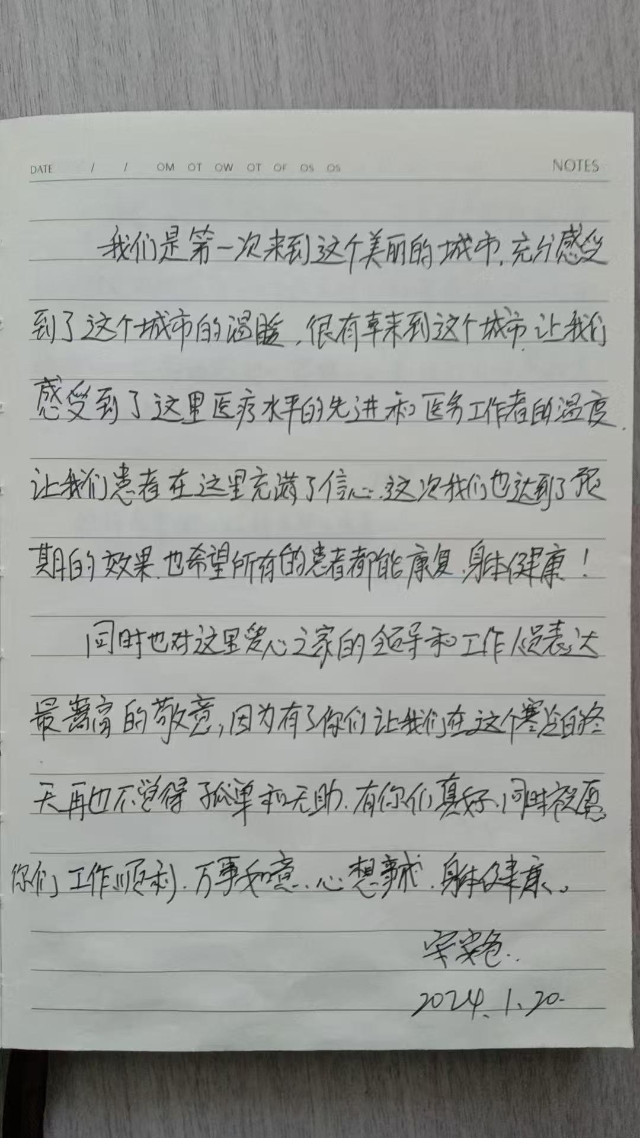 DATE / / OM OT OW OT OF OS OS NOTES
我们是第一次来到这个美丽的城市,充分感受
到了这个城市的温暖,很有幸来到这个城市,让我们
感受到了这里医疗水平的先进和医务工作者的温度,
让我们患者在这里充满了信心,这次我们也达到了预
期的效果,也希望所有的患者都能康复,身体健康!
同时也对这里爱心之家的领导和工作人员表达
最高的敬意,因为有了你们让我们在这个寒冷的冬
天再也不觉得孤单和无助,有你们真好,同时祝愿
你们工作顺利,万事如意,心想事成,身体健康。
2024.1.20